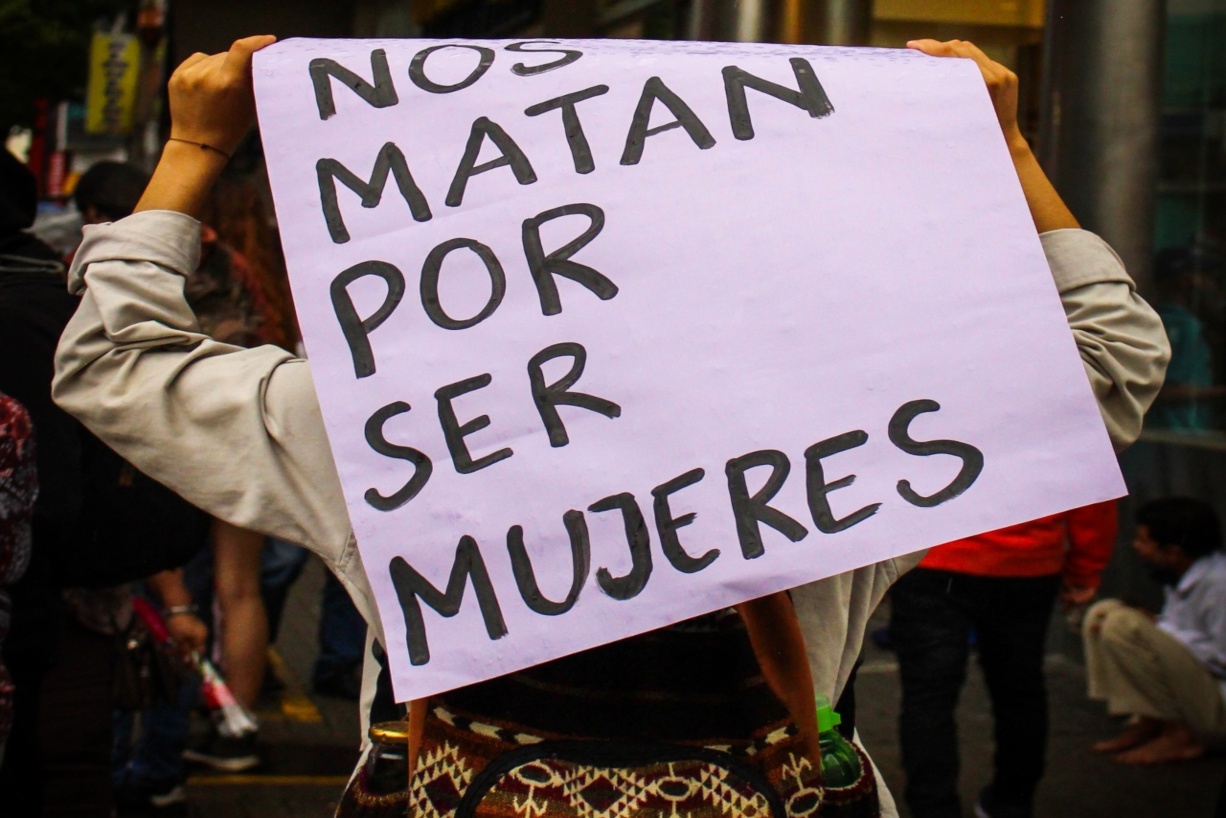 NOS
MATAN
POR
SER
MUJERES